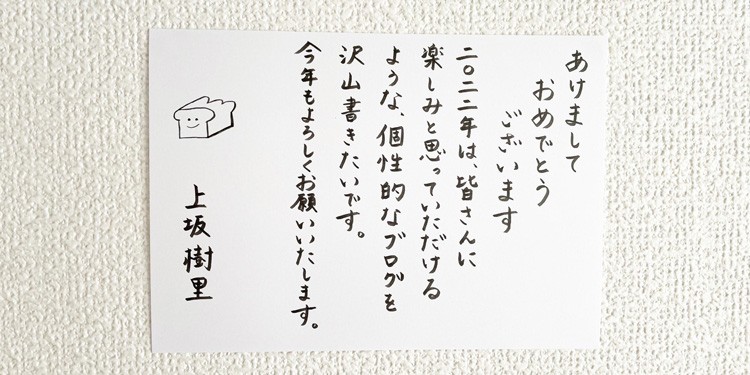 あけまして
おめでとう
ございます
二〇二二年は、皆さんに
楽しみと思っていただける
ような、個性的なブログを
沢山書きたいです。
今年もよろしくお願いいたします。
上坂樹里